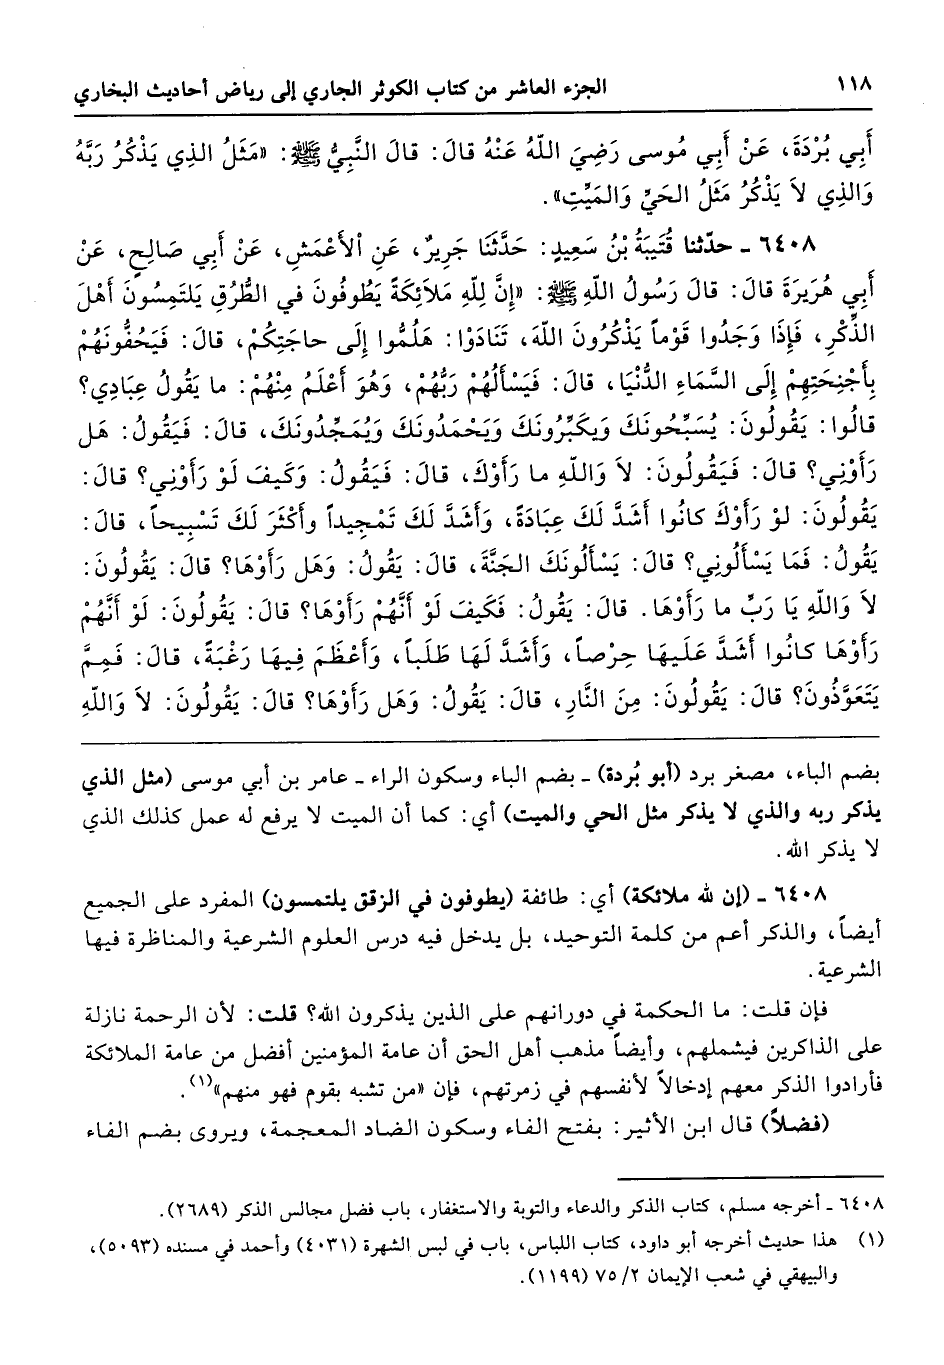 ١١٨ الجزء العاشر من كتاب الكوثر الجاري إلى رياض أحاديث البخاري
أَبِي بُرْدَةَ، عَنْ أَبِي مُوسى رَضِيَ اللَّهُ عَنْهُ قالَ: قالَ النَّبِيُّ ﷺ: «مَثَلُ الذِي يَذْكُرُ رَبَّهُ
وَالذِي لاَ يَذْكُرُ مَثَلُ الحَيِّ وَالمَيِّتِ».
٦٤٠٨ ـ حدّثنا قُتَيبَةُ بْنُ سَعِيدٍ: حَدَّثَنَا جَرِيرٌ، عَنِ الأَعْمَشِ، عَنْ أَبِي صَالِحٍ، عَنْ
أَبِي هُرَيرَةَ قالَ: قالَ رَسُولُ اللَّهِ ﷺ: «إِنَّ لِلّهِ مَلاَئِكَةً يَطُوفُونَ في الطُّرُقِ يَلتَمِسُونَ أَهْلَ
الذِّكْرِ، فَإِذَا وَجَدُوا قَوْماً يَذْكُرُونَ اللَّهَ، تَنَادَوْا: هَلُمُّوا إِلَى حاجَتِكُمْ، قالَ: فَيَحُفُّونَهُمْ
بِأَجْنِحَتِهِمْ إِلَى السَّمَاءِ الدُّنْيَا، قالَ: فَيَسْأَلُهُمْ رَبُّهُمْ، وَهُوَ أَعْلَمُ مِنْهُمْ: ما يَقُولُ عِبَادِي؟
قالُوا: يَقُولُونَ: يُسَبِّحُونَكَ وَيكَبِّرُونَكَ وَيَحْمَدُونَكَ وَيُمَجِّدُونَكَ، قالَ: فَيَقُولُ: هَل
رَأَوْنِي؟ قالَ: فَيَقُولُونَ: لاَ وَاللَّهِ ما رَأَوْكَ، قالَ: فَيَقُولُ: وَكَيفَ لَوْ رَأَوْنِي؟ قالَ:
يَقُولُونَ: لوْ رَأَوْكَ كانُوا أَشَدَّ لَكَ عِبَادَةً، وَأَشَدَّ لَكَ تَمْجِيداً وأَكْثَرَ لَكَ تَسْبِيحاً، قالَ:
يَقُولُ: فَمَا يَسْأَلُونِي؟ قالَ: يَسْأَلُونَكَ الجَنَّةَ، قالَ: يَقُولُ: وَهَل رَأَوْهَا؟ قالَ: يَقُولُونَ:
لاَ وَاللَّهِ يَا رَبِّ ما رَأَوْهَا. قالَ: يَقُولُ: فَكَيفَ لَوْ أَنَّهُمْ رَأَوْهَا؟ قالَ: يَقُولُونَ: لَوْ أَنَّهُمْ
رَأَوْهَا كانُوا أَشَدَّ عَلَيهَا حِرْصاً، وَأَشَدَّ لَهَا طَلَباً، وَأَعْظَمَ فِيهَا رَغْبَةً، قالَ: فَمِمَّ
يَتَعَوَّذُونَ؟ قالَ: يَقُولُونَ: مِنَ النَّارِ، قالَ: يَقُولُ: وَهَل رَأَوْهَا؟ قالَ: يَقُولُونَ: لاَ وَاللَّهِ
بضم الباء، مصغر برد (أبو بُردة) ـ بضم الباء وسكون الراء ـ عامر بن أبي موسى (مثل الذي
يذكر ربه والذي لا يذكر مثل الحي والميت) أي: كما أن الميت لا يرفع له عمل كذلك الذي
لا يذكر الله.
٦٤٠٨ ـ (إن لله ملائكة) أي: طائفة (يطوفون في الزقق يلتمسون) المفرد على الجميع
أيضاً، والذكر أعم من كلمة التوحيد، بل يدخل فيه درس العلوم الشرعية والمناظرة فيها
الشرعية.
فإن قلت: ما الحكمة في دورانهم على الذين يذكرون الله؟ قلت: لأن الرحمة نازلة
على الذاكرين فيشملهم، وأيضاً مذهب أهل الحق أن عامة المؤمنين أفضل من عامة الملائكة
فأرادوا الذكر معهم إدخالاً لأنفسهم في زمرتهم، فإن «من تشبه بقوم فهو منهم»(١).
(فضلاً) قال ابن الأثير: بفتح الفاء وسكون الضاد المعجمة، ويروى بضم الفاء
٦٤٠٨ ـ أخرجه مسلم، كتاب الذكر والدعاء والتوبة والاستغفار، باب فضل مجالس الذكر (٢٦٨٩).
(١) هذا حديث أخرجه أبو داود، كتاب اللباس، باب في لبس الشهرة (٤٠٣١) وأحمد في مسنده (٥٠٩٣)،
والبيهقي في شعب الإيمان ٢/ ٧٥ (١١٩٩).